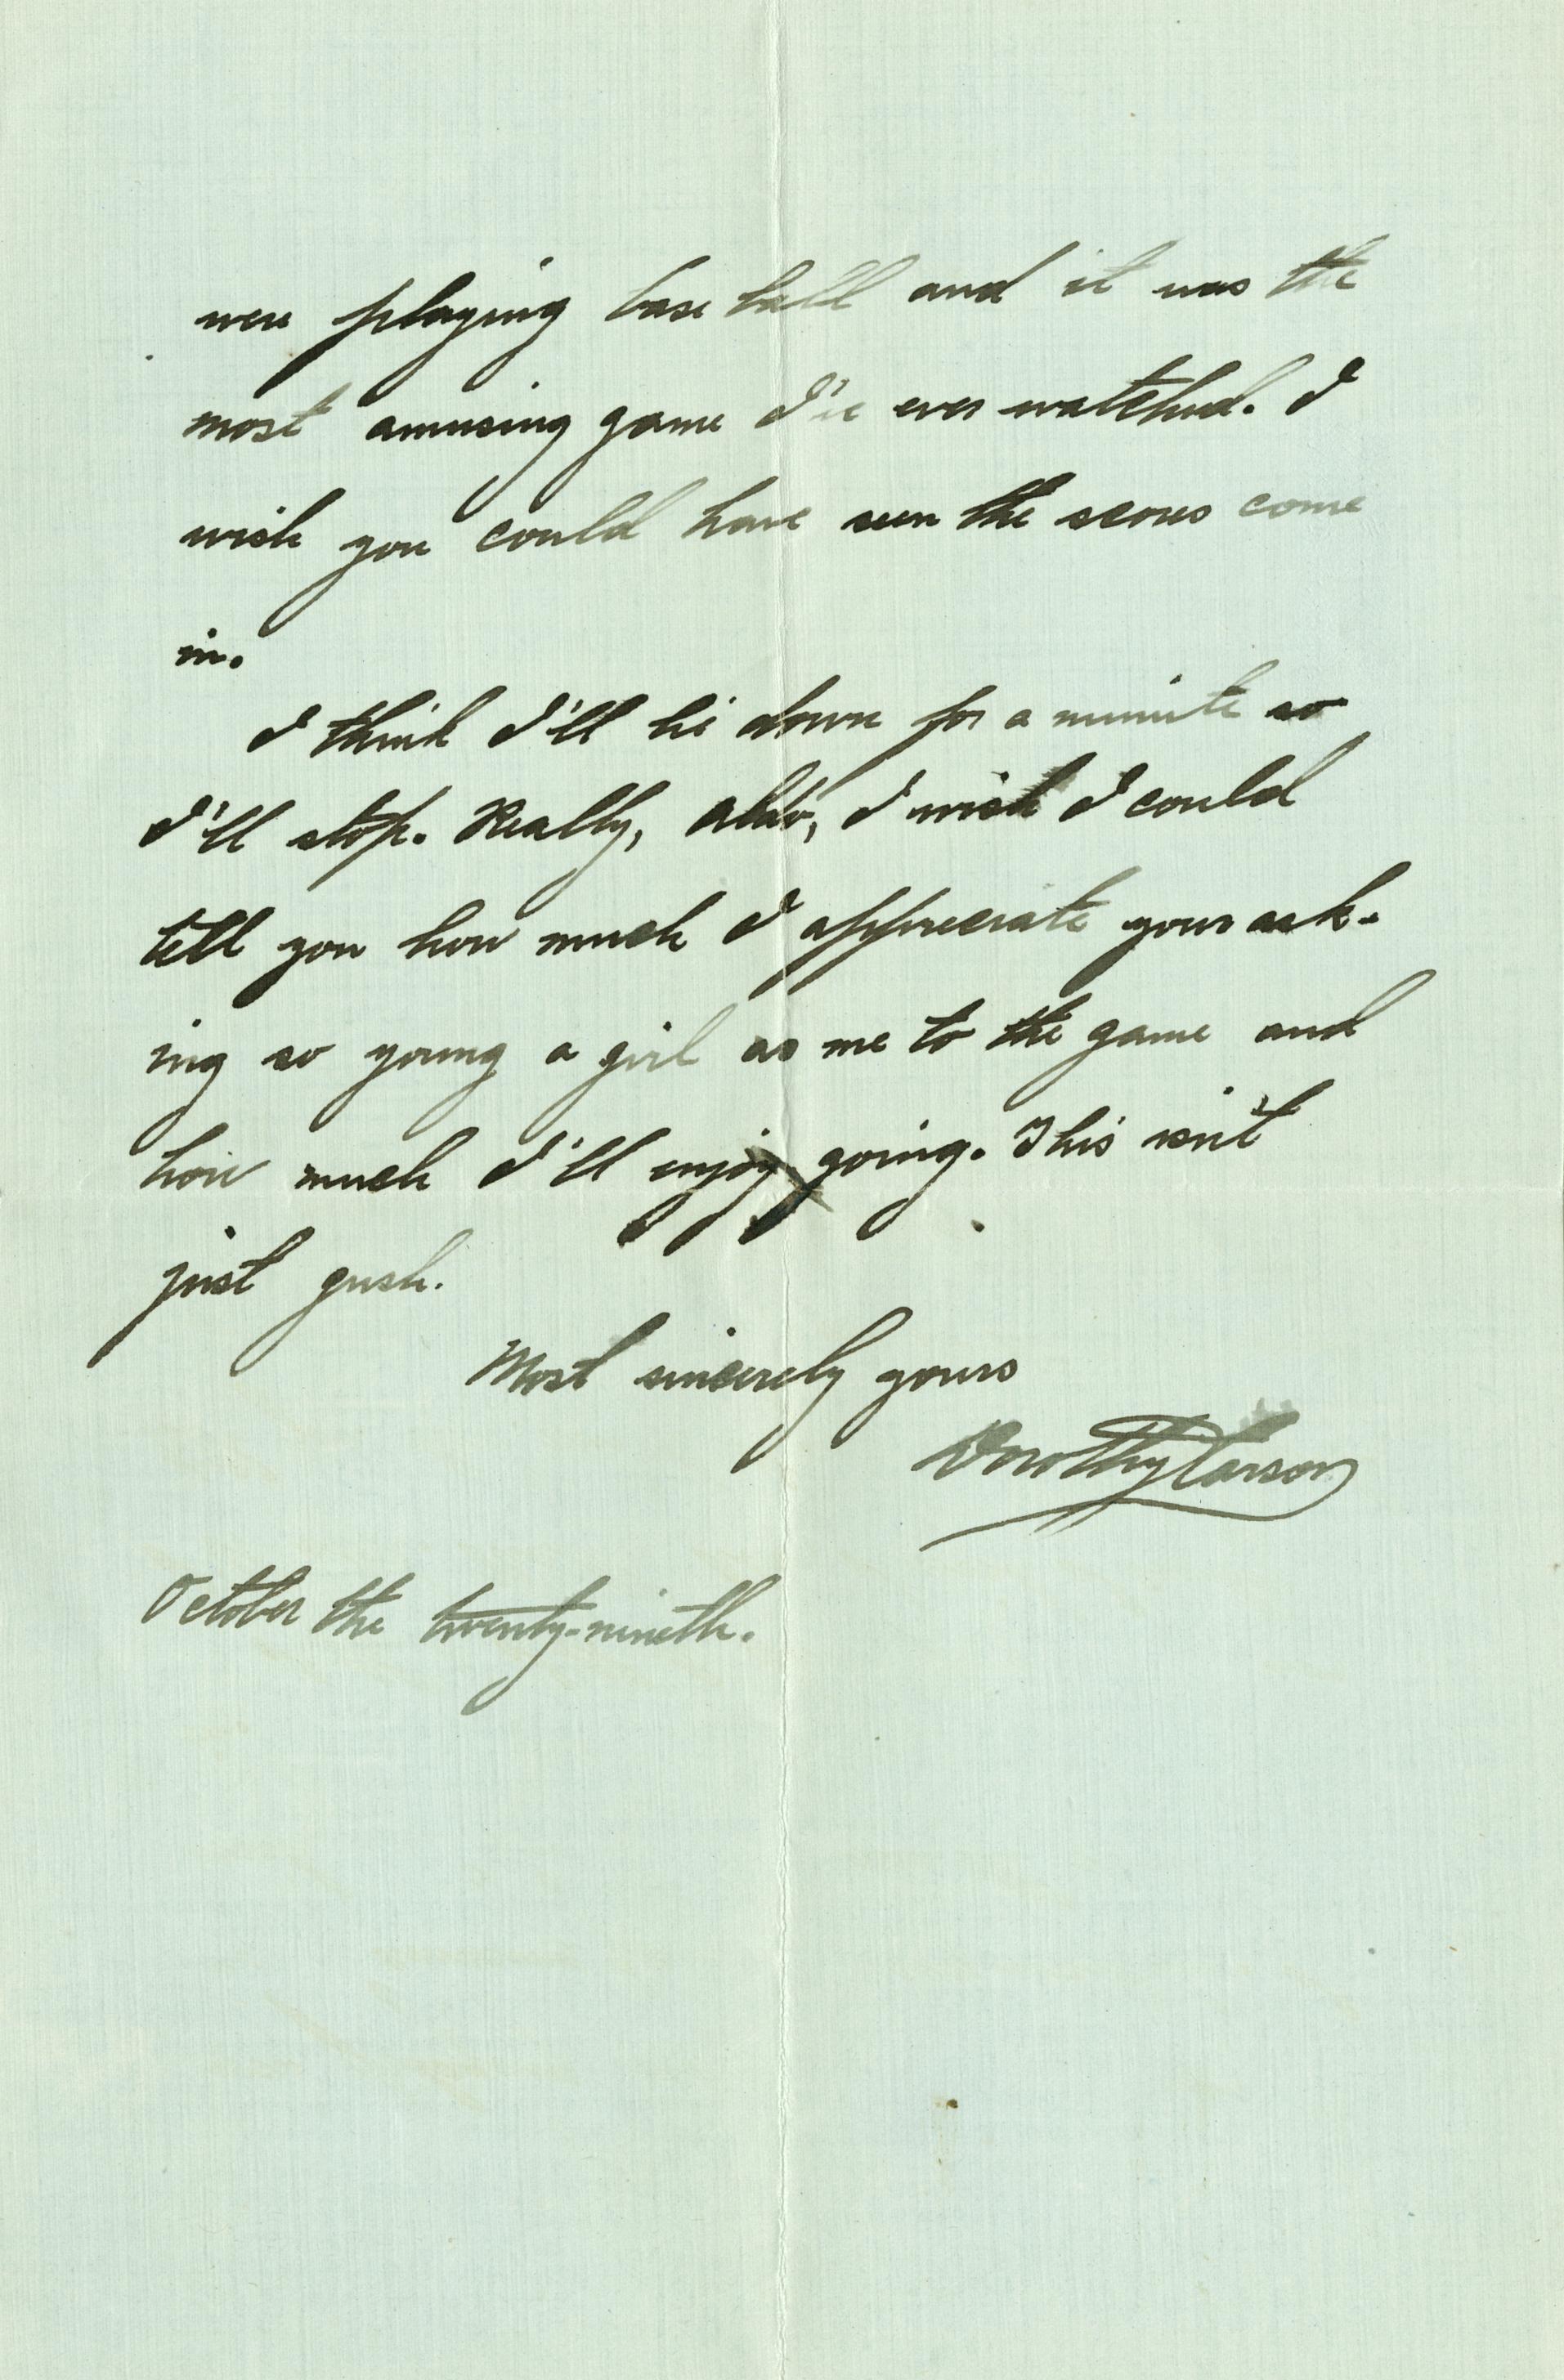 were playing base ball and it was the
most amusing game I've ever watched. I
wish you could have seen the scores come
in.
I think I'll lie down for a minute so
I'll stop. Really, Aldo, I wish I could
tell you how much I appreciate your ask-
ing so young a girl as me to the game and
how much I'll enjoy going. This isn't
just gush.
Most sincerely yours
Dorothy Carson
October the twenty-nineth.